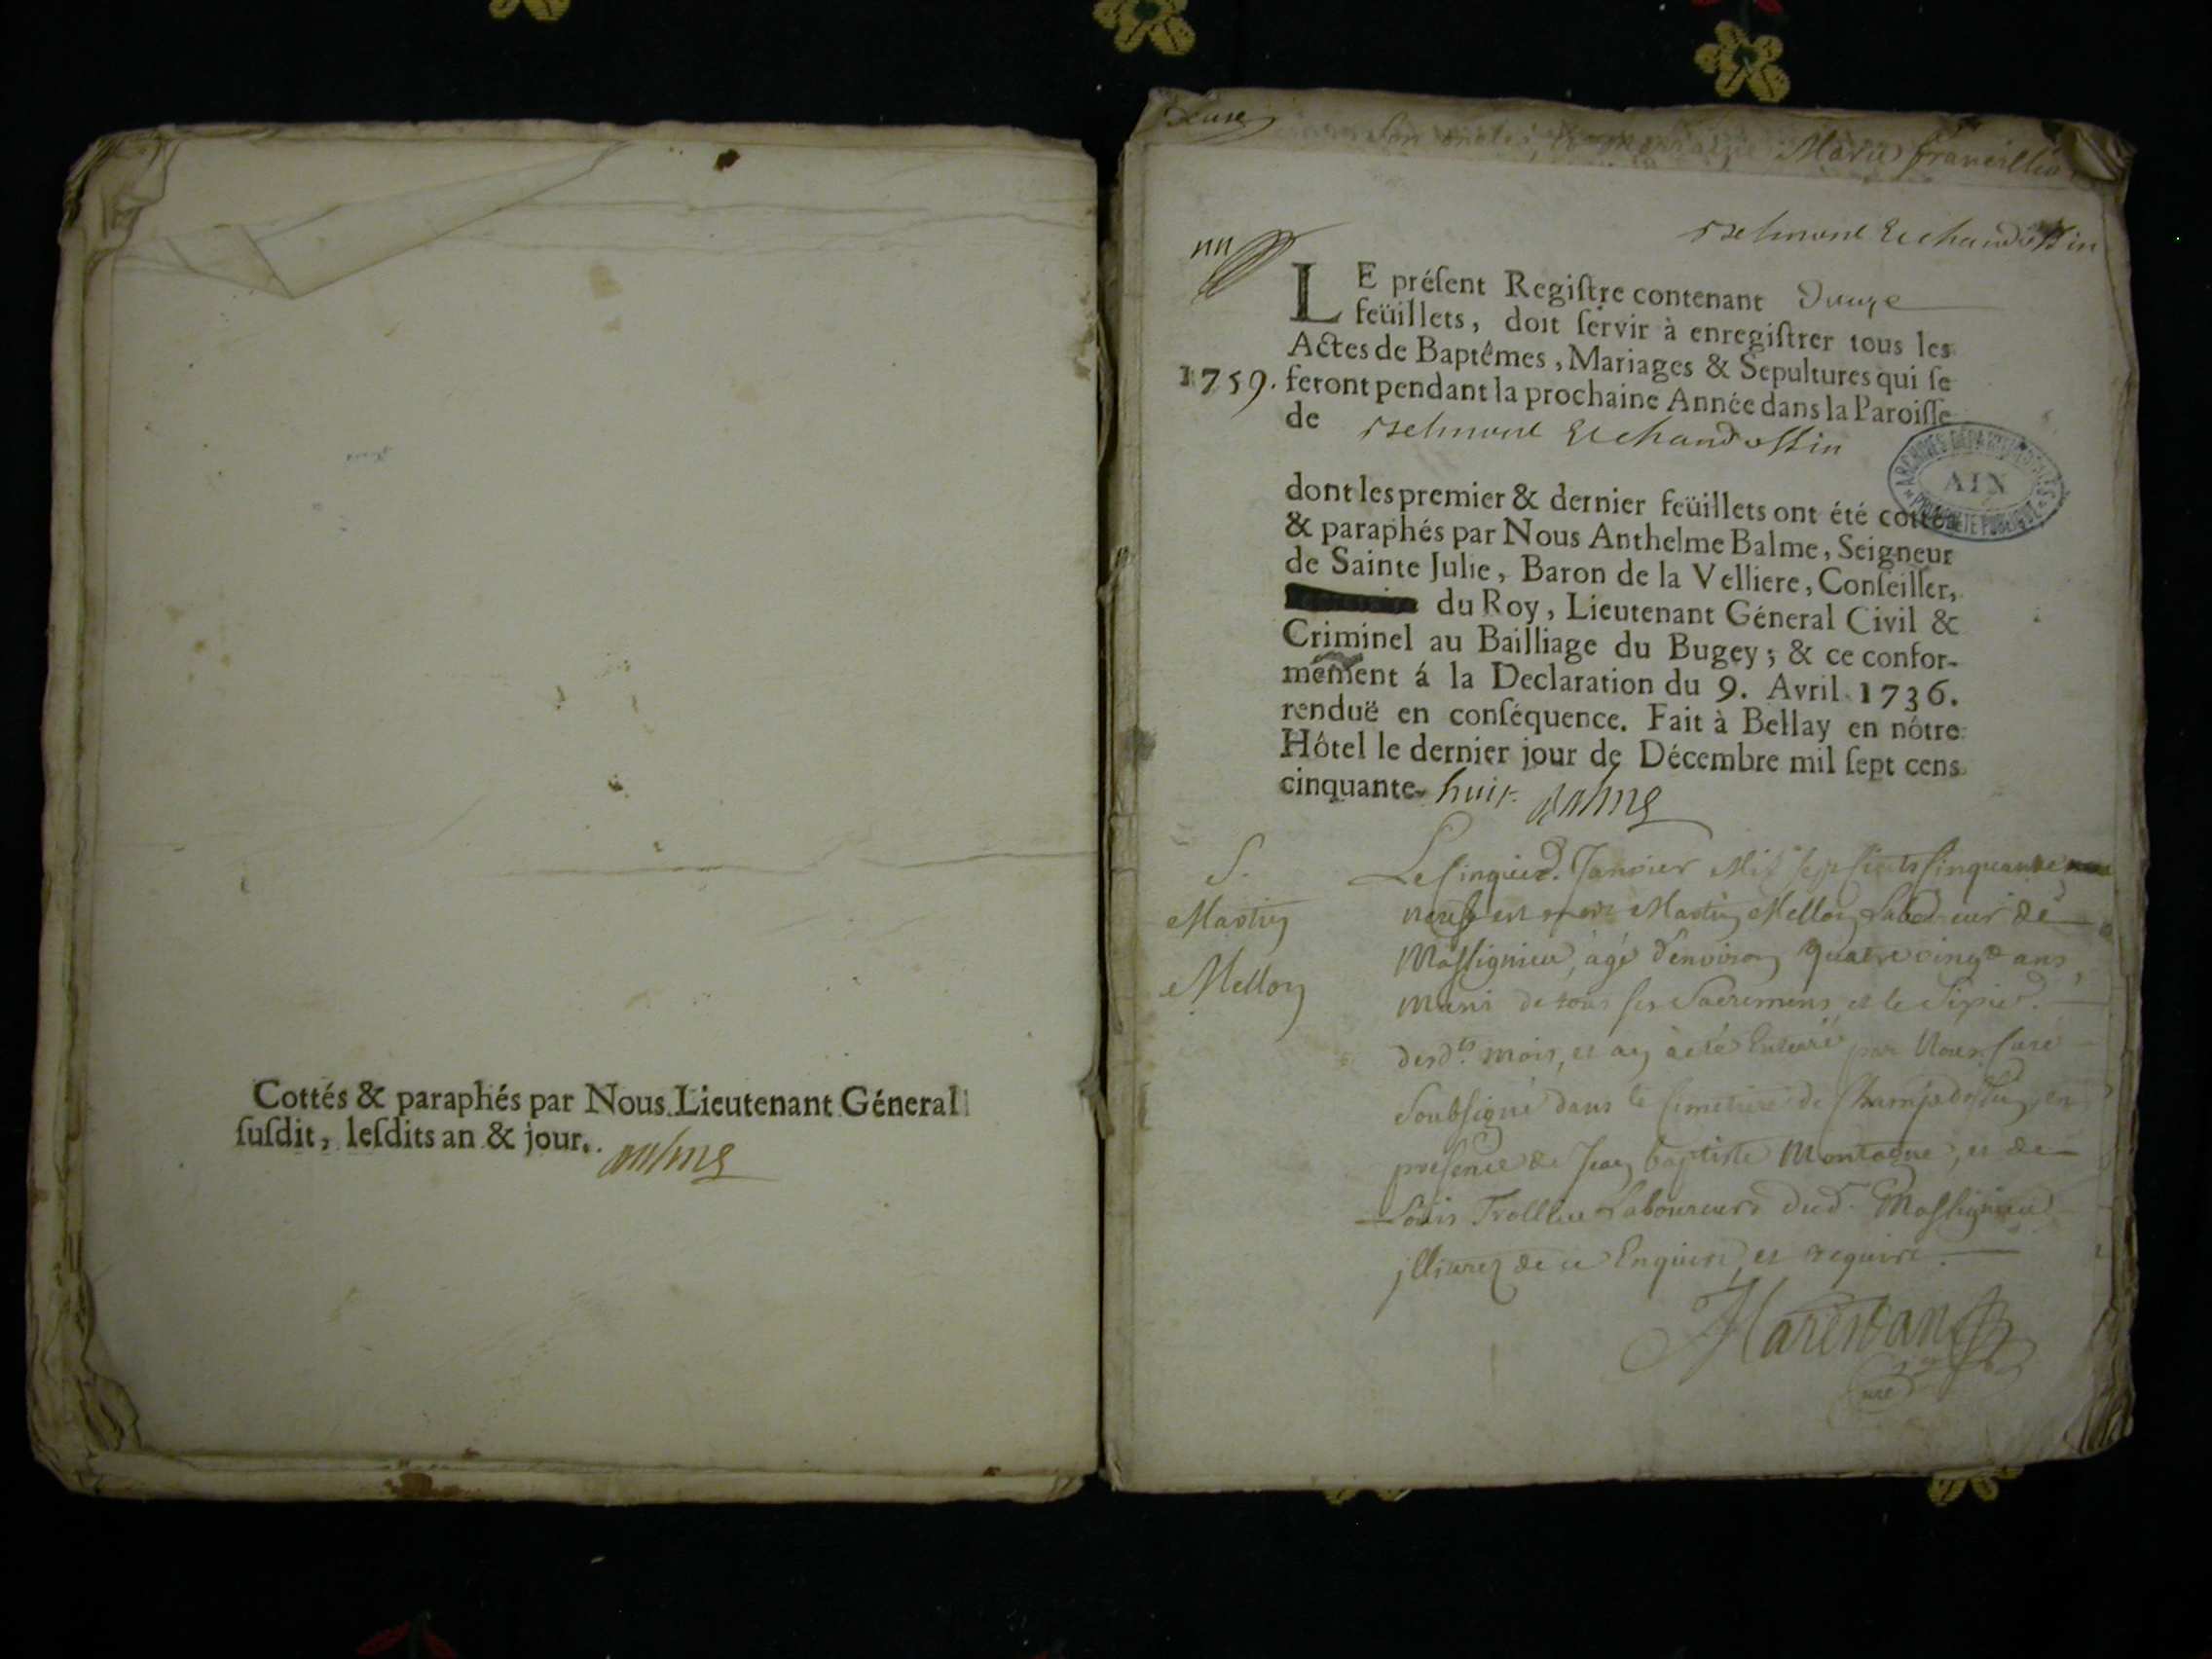 Cottés & paraphés par Nous Lieutenant Géneral
ſuſdit, leſdits an & jour.
Balme
Marie
Belmont Et chandossin
LE préſent Regiſtre contenant douze
feüillets, doit ſervir à enregiſtrer tous les
Actes de Baptêmes, Mariages & Sepultures qui ſe
1759. feront pendant la prochaine Année dans la Paroiſſe
de Belmont Et chandossin
ARCHIVES DÉPARTEMENTALES
AIN
PROPRIÉTÉ PUBLIQUE
dont les premier & dernier feüillets ont été cottés
& paraphés par Nous Anthelme Balme, Seigneur
de Sainte Julie, Baron de la Velliere, Conſeiller,
du Roy, Lieutenant Géneral Civil &
Criminel au Bailliage du Bugey; & ce confor-
mément á la Declaration du 9. Avril 1736.
renduë en conſéquence. Fait à Bellay en nôtre
Hôtel le dernier jour de Décembre mil ſept cens
cinquante- huit Balme
S.
Martin
Mellon
Le Cinquie. Janvier Mil sept cents Cinquante
neuf est mort Martin Mellon Laboureur de
Massignieu, agé d'environ quatre vingt ans
muni de tous ses Sacremens, et le Sixie.
desd.ts mois, et an a eté Enterré par Nous Curé
Soubsigné dans le Cimetiere de Champdossin, en
presence de Jean baptiste Montagne, et de
Louis Trollieu Laboureurs dud. Massignieu
illiterez de ce Enquis, et requis.
Curé